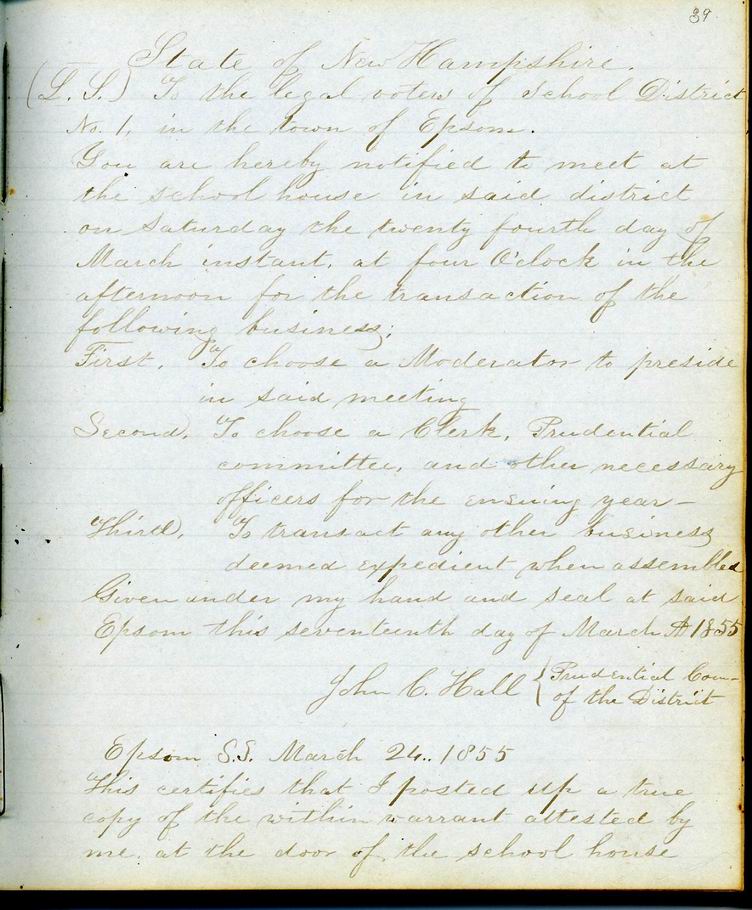 39
State of New Hampshire.
(L. S.) To the legal voters of School District
No. 1, in the town of Epsom.
You are hereby notified to meet at
the school house in said district
on Saturday the twenty fourth day of
March instant, at four O'clock in the
afternoon for the transaction of the
following business;
First, To choose a Moderator to preside
in said meeting
Second, To choose a Clerk, Prudential
committee, and other necessary
officers for the ensuing year—
Third, To transact any other business
deemed expedient when assembled
Given under my hand and seal at said
Epsom this seventeenth day of March A 1855
John C. Hall { Prudential Com—
of the District
Epsom S.S. March 24.. 1855
This certifies that I posted up a true
copy of the within warrant attested by
me, at the door of the school house